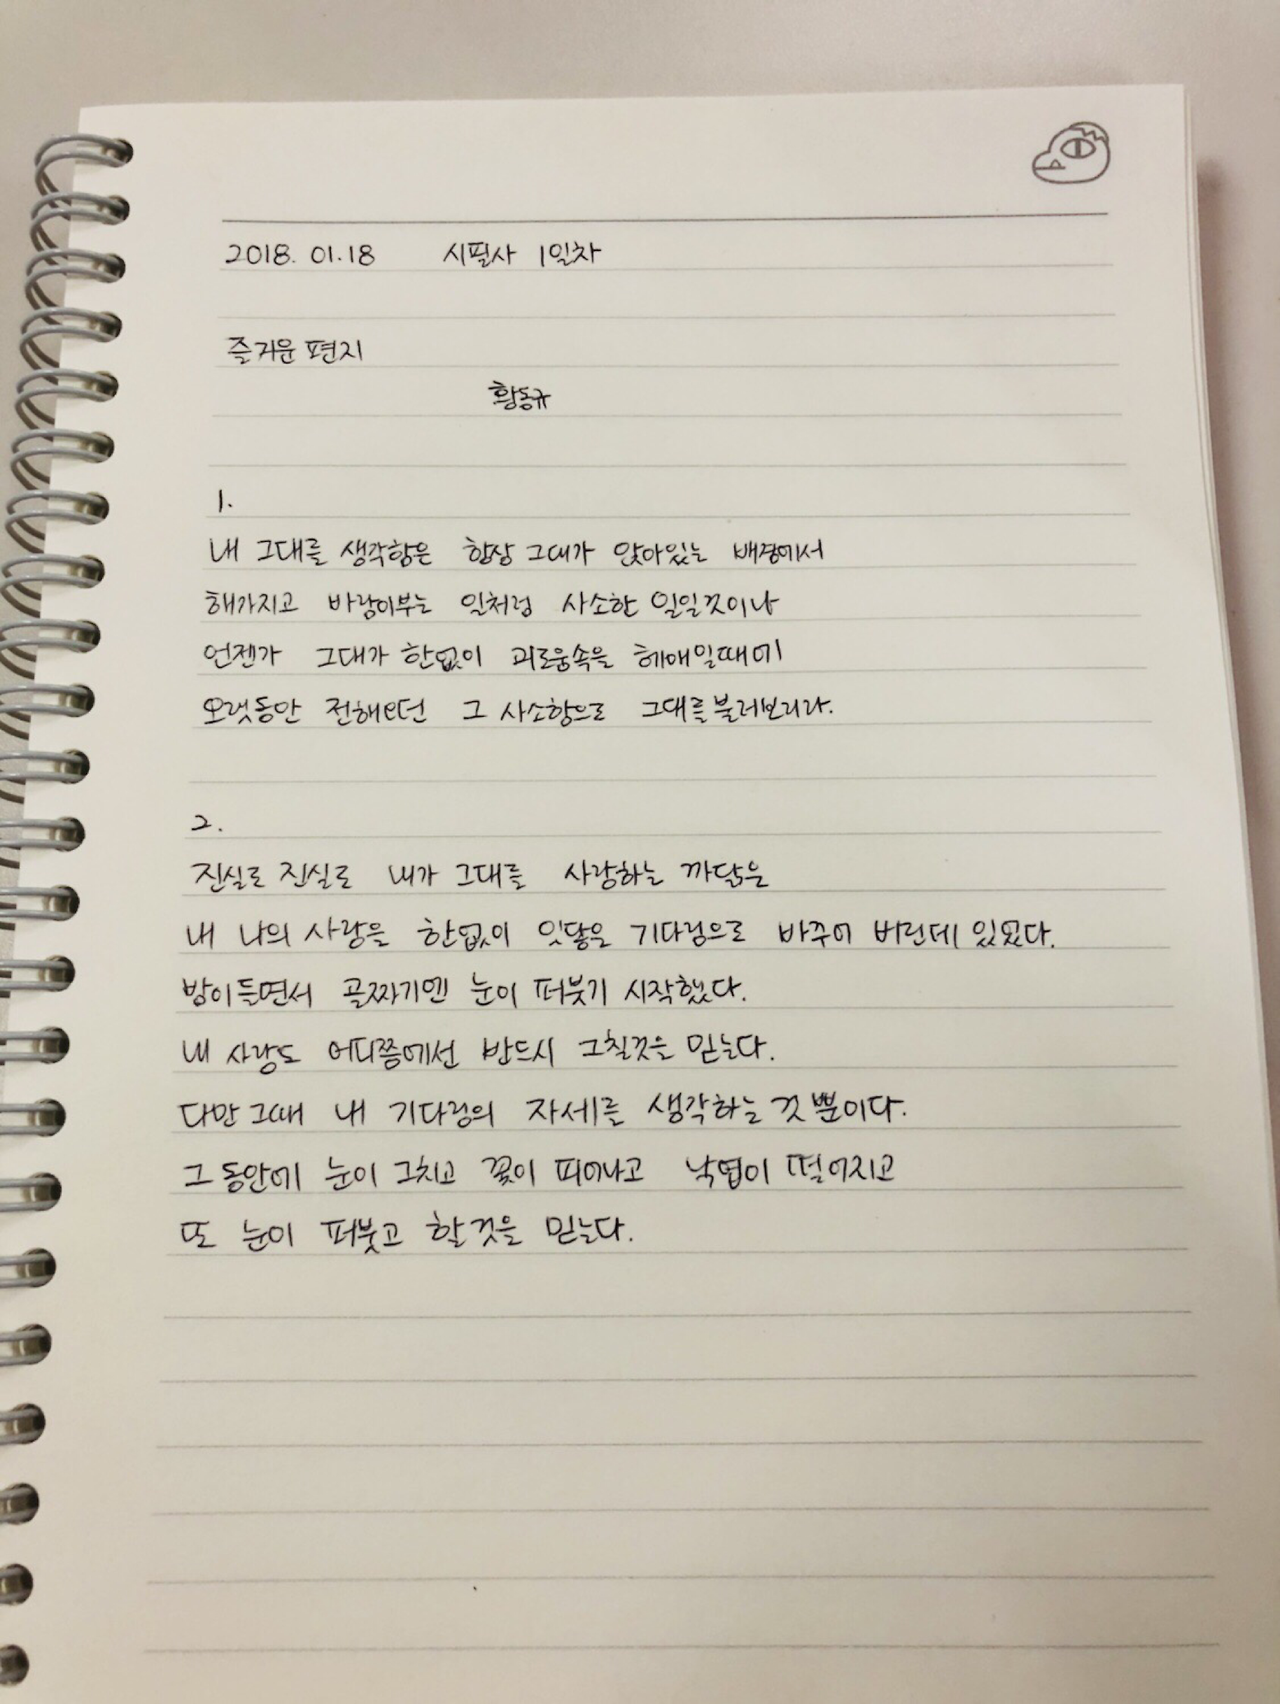 2018. 01. 18 시필사 1일차
즐거운 편지
황동규
1.
내 그대를 생각함은 항상 그대가 앉아있는 배경에서
해가지고 바람이부는 일처럼 사소한 일일것이나
언젠가 그대가 한없이 괴로움속을 헤매일때에
오랫동안 전해오던 그 사소함으로 그대를불러보리라.
2.
진실로 진실로 내가 그대를 사랑하는 까닭은
내 나의 사랑을 한없이 잇닿은 기다림으로 바꾸어 버린데 있었다.
밤이들면서 골짜기엔 눈이 퍼붓기 시작했다.
내 사랑도 어디쯤에선 반드시 그칠것을 믿는다.
다만 그때 내 기다림의 자세를 생각하는 것 뿐이다.
그 동안에 눈이 그치고 꽃이 피어나고 낙엽이 떨어지고
또 눈이 퍼붓고 할것을 믿는다.